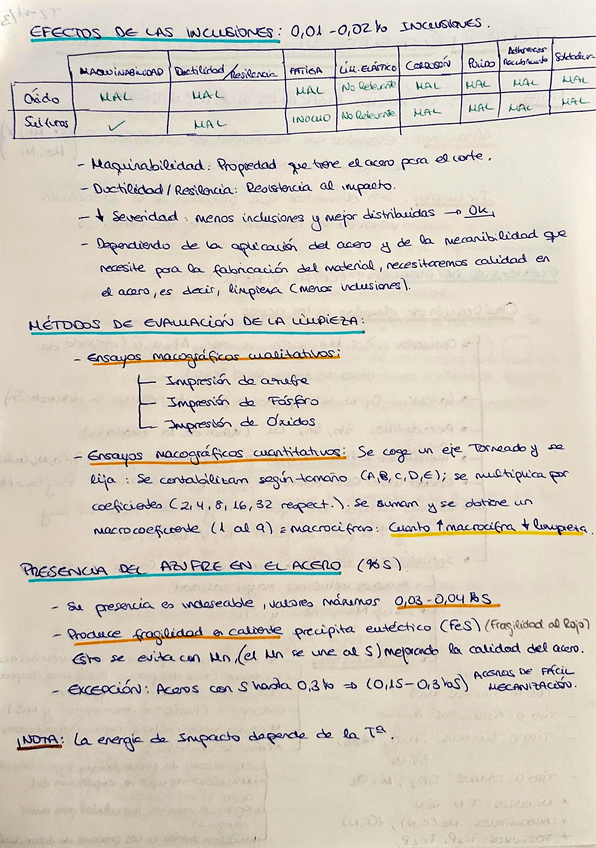 EFECTOS DE LAS INCLUSIONES: 0,01-0,02% INCLUSIONES.
MAQUINABILIDAD Ductilidad/Resiliencia FATIGA LíM. ELÁSTICO CORROSIÓN PULIDO Adherencia Recubrimiento Soldadura
Óxido MAL MAL MAL No Relevante MAL MAL MAL MAL
Sulfuros ✓ MAL INOCUO No Relevante MAL MAL MAL MAL
- Maquinabilidad: Propiedad que tiene el acero para el corte.
- Ductilidad/Resiliencia: Resistencia al impacto.
- ↓ Severidad: menos inclusiones y mejor distribuidas → Ok.
- Dependiendo de la aplicación del acero y de la mecanibilidad que
necesite para la fabricación del material, necesitaremos calidad en
el acero, es decir, limpieza (menos inclusiones).
MÉTODOS DE EVALUACIÓN DE LA LIMPIEZA:
- Ensayos macográficos cualitativos:
Impresión de azufre
Impresión de Fósforo
Impresión de Óxidos
- Ensayos macográficos cuantitativos: Se coge un eje Torneado y se
lija: Se contabilizan según tamaño (A,B,C,D,E); se multiplica por
coeficientes (2,4,8,16,32 respect.). Se suman y se obtiene un
macrocoeficiente (1 al 9) = macrocifras: Cuanto ↑ macrocifra ↓ limpieza.
PRESENCIA DEL AZUFRE EN EL ACERO (%S).
- Su presencia es indeseable, valores máximos 0,03-0,04%S
- Produce fragilidad en caliente precipita eutéctico (FeS) (Fragilidad al Rojo)
Esto se evita con Mn, (el Mn se une al S) mejorando la calidad del acero.
- EXCEPCIÓN: Aceros con S hasta 0,3% ⇒ (0,15-0,3%S) ACEROS DE FÁCIL MECANIZACIÓN.
NOTA: La energía de Impacto depende de la Tª.